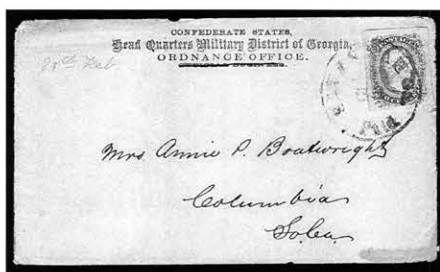 CONFEDERATE STATES,
Head Quarters Military District of Georgia,
ORDNANCE OFFICE.
25th Feb
Mrs Annie P. Boatwright
Columbia
So. Ca.